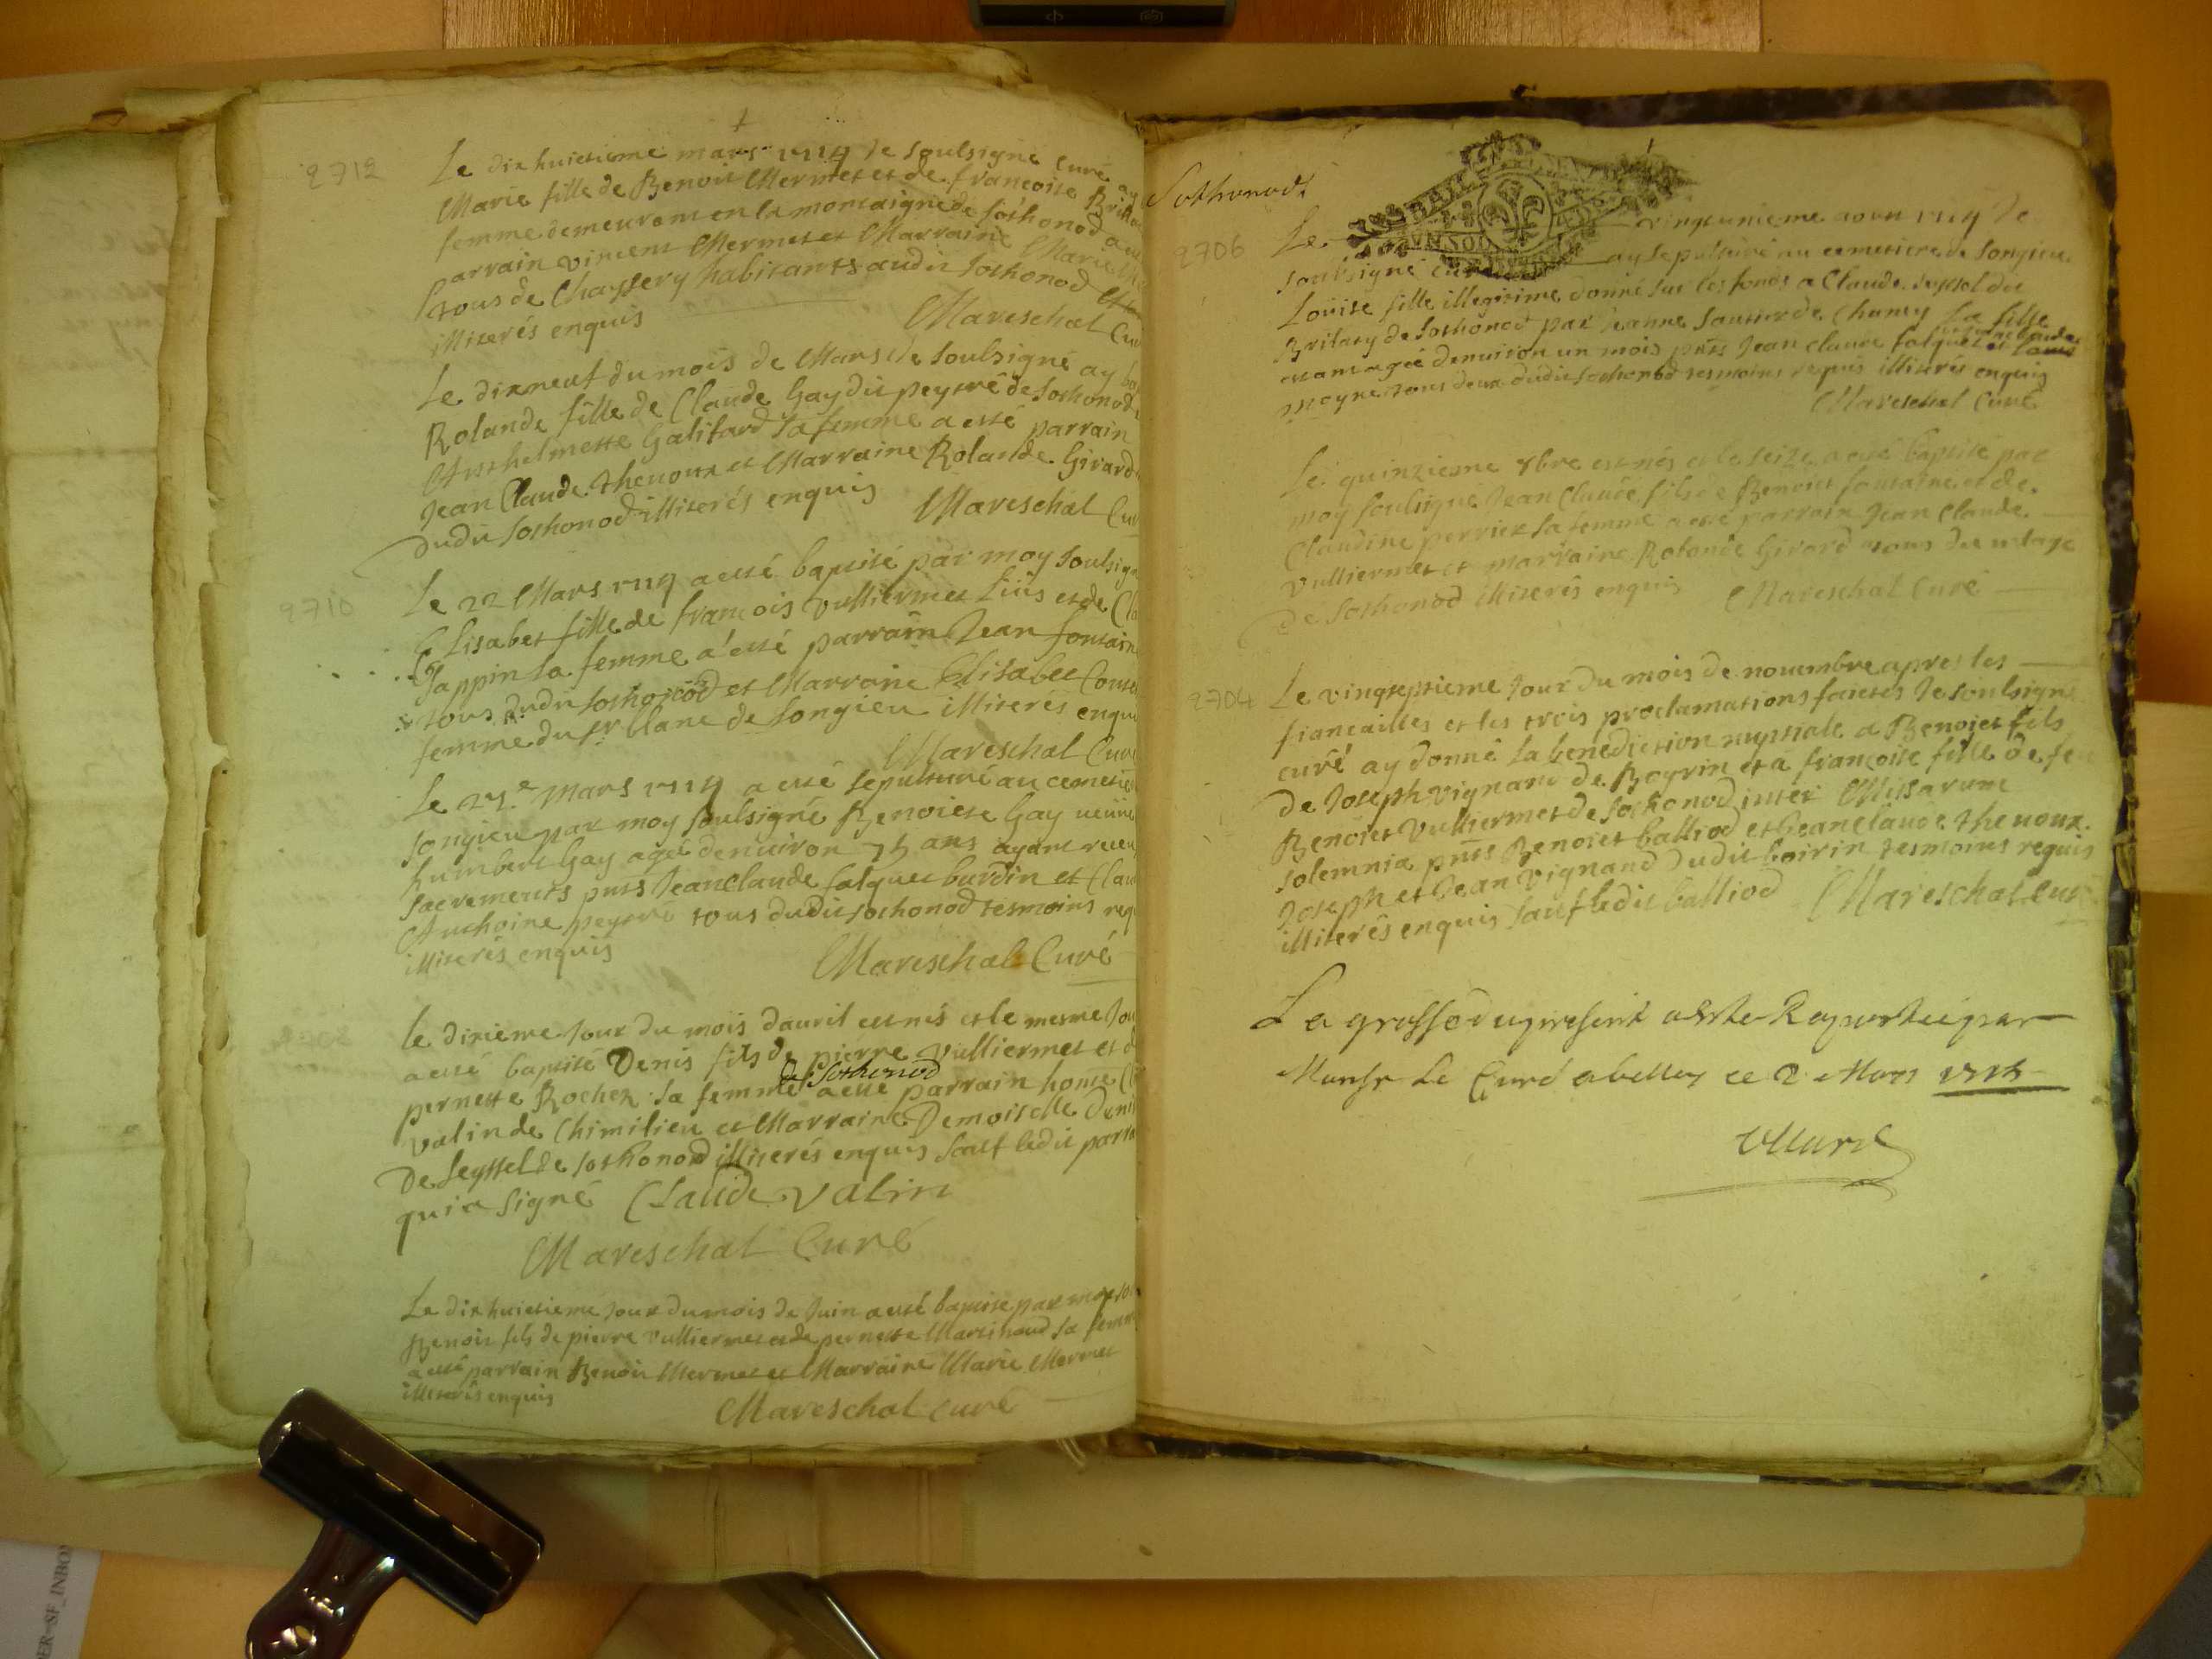 2712
Le dix huictieme mars 1714 Je soulsigné curé ay
Marie fille de Benoit Mermet et de francoise Brit
femme demeurant en la montaigne de sothonod a
parrain vincent Mermet et Marraine Marie
tous de Chayssery habitants audit Sothonod
illiterés enquis Mareschal Cu
Le dixneuf du mois de Mars Je soulsigné ay b
Rolande fille de Claude Gay dit peytré de Sothonod
Anthelmette Galifard sa femme a esté parrain
Jean Claude thenoux et Marraine Rolande Girard
dudit Sothonod illiterés enquis Mareschal Cur
2710
Le 22 Mars 1714 a esté baptisé par moy soulsig
Elisabet fille de francois vulliermet et de Cl
Jappin sa femme a esté parrain Jean fontain
tous dudit sothonod et Marraine Elisabet
femme du sr blanc de Songieu illiterés enqu
Mareschal Curé
Le 27.e Mars 1714 a esté sepulturé au cemetie
songieu par moy soulsigné Benoiete Gay
humbert Gay agée denuiron 75 ans ayant receu
sacrements pnts Jean claude falquet burdin et Clau
Anthoine peytré tous dudit sothonod tesmoins req
illiterés enquis Mareschal Curé
Le dixieme Jour du mois dauril est nés et le mesme Jou
a esté baptisé Denis fils de pierre vulliermet et d
pernette Rochex sa femme de Sothonod a esté parrain home Cl
valin de Chimilieu et Marraine Demoiselle deni
De seyssel de sothonod illiterés enquis sauf ledit parra
qui a signé Claude valin
Mareschal Curé
Le dix huictieme Jour du mois de Juin a esté baptisé par moy so
Benoit fils de pierre vulliermet et de pernette Martinand sa femme
a esté parrain Benoit Mermet et Marraine Marie Mermet
illiterés enquis Mareschal curé
Sothonod
2706
Le vingtunieme aoust 1714 Je
soulsigné curé ay sepulturé au cemetiere de songieu
Louise fille illegitime donné sur les fonds a Claude seyssel du
Britary de sothonod par Jeanne de Chaney La fille
estant agée denuiron un mois pnts Jean claude falquet et
moyne tous deux dudit sothonod tesmoins requis illiterés enquis
Mareschal Curé
Le quinzieme 8bre est nés et le seize a esté baptisé par
moy soulsigné Jean Claude fils de Benoict fontaine et de
Claudine perrier sa femme a esté parrain Jean Claude
vulliermet et marraine Rolande Girard tous du vilage
de sothonod illiterés enquis Mareschal Curé
2704
Le vingtseptieme Jour du mois de nouembre apres les
fiancailles et les trois proclamations faictes Je soulsigné
curé ay donné la benediction nuptiale a Benoict fils
de Joseph vignand de Boyrin et a francoise fille de feu
Benoict Vulliermet de sothonod inter Missarum
solemnia pnts Benoict balliod et Jean claude thenoux
Joseph et Jean vignand dudit boirin tesmoins requis
illiterés enquis sauf ledit balliod Mareschal Curé
La grosse du present a Esté Raportée par
Monsr Le Curé a belley ce 2 Mars 1715